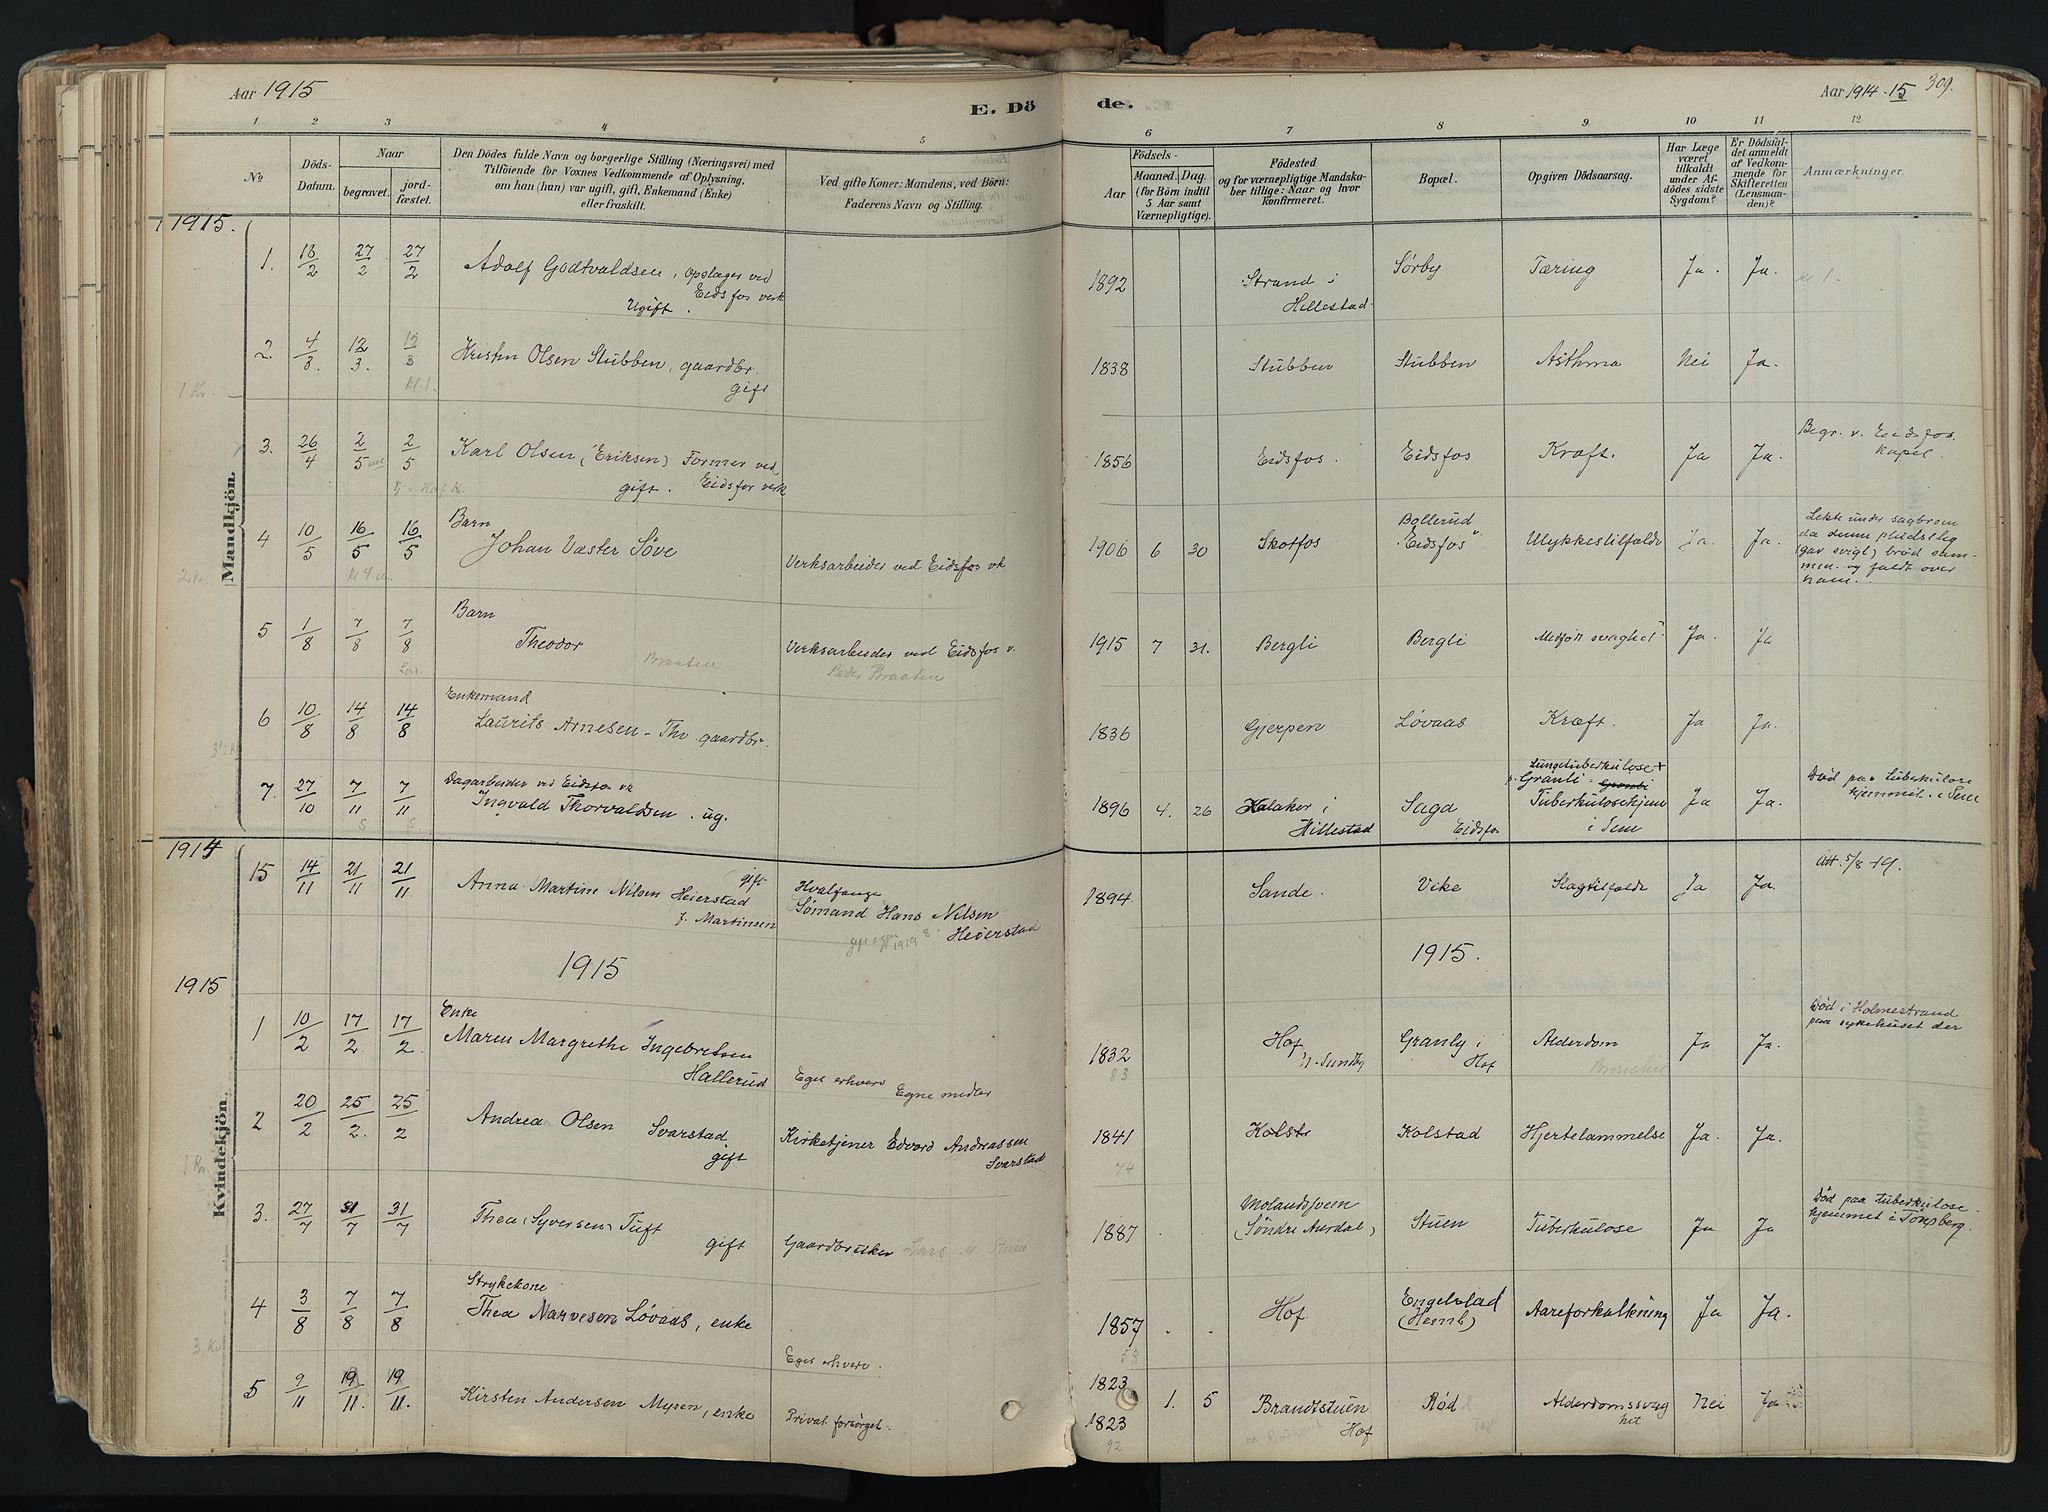 Aar 1915
E. Dö
de.
Aar 1914-15
309.
1 2 3 4 5 6 7 8 9. 10 11 12
No
Döds-Datum.
Naar
begravet.
jord-fæstet.
Den Dödes fulde Navn og borgerlige Stilling (Næringsvei) med
Tilföiende for Voxnes Vedkommende af Oplysning,
om han (hun) var ugift, gift, Enkemand (Enke)
eller fraskilt.
Ved gifte Koner: Mandens, ved Börn:
Faderens Navn og Stilling.
Födsels-
Aar
Maaned. Dag.
(for Börn indtil
5 Aar samt
Værnepligtige).
Födested
og for værnepligtige Mandska-
ber tillige: Naar og hvor
konfirmeret.
Bopæl.
Opgiven Dödsaarsag.
Har Læge
været
tilkaldt
under Af-
dödes sidste
Sygdom?
Er Dödsfal-
det anmeldt
af Vedkom-
mende for
Skifteretten
(Lensman-
den)?
Anmærkninger.
1915.
Mandkjön.
1. 18/2 27/2 27/2 Adolf Godtvaldsen, opslager ved
Eidsfos verk
Ugift.
1892 Strand i
Hillestad
Sørby Tæring Ja. Ja.
2. 4/3. 12/3. 12/3 Kristen Olsen Stubben, gaardbr.
gift
1838 Stubben Stubben Asthma Nei Ja.
1 Kr.
3. 26/4 2/5 2/5 Karl Olsen (Eriksen) Former ved
gift. Eidsfos verk
1856 Eidsfos. Eidsfos Kræft. Ja Ja.
Begr. v. Eidsfos.
Kapel.
4 10/5 16/5 16/5 Barn
Johan Væster Söve
Verksarbeider ved Eidsfos vk
1906 6 30 Skotfos Bollerud
"Eidsfos"
Ulykkestilfælde Ja. Ja.
Lekte under sagbrom
da denne pludselig
(gav svigt) brød sam-
men og faldt over
ham.
5 1/8 7/8 7/8 Barn
Theodor
Braaten
Verksarbeider ved Eidsfos v.
Peder Braaten
1915 7 31. Bergli Bergli Medfødt svaghet Ja. Ja
6 10/8 14/8 14/8 Enkemand
Laurits Arnesen - Thv gaardbr.
1836 Gjerpen Løvaas Kræft. Ja Ja.
7. 27/10 7/11 7/11 Dagarbeider ved Eidsfos vk
Ingvald Thorvaldsen. ug.
1896 4. 26 Kalaker i
Hillestad
Saga
Eidsfos
Lungetuberkulose +
Granli
Tuberkulosehjem
i Sem
Ja Ja.
Død paa tuberkulose
hjemmet i Sem
1914
Kvindekjön.
15 14/11 21/11 21/11 Anna Martine Nilsen Heierstad gift
f. Martinsen
Hvalfanger
Sömand Hans Nilsen
Heierstad
1894 Sande. Vike Slagtilfælde Ja Ja.
Att. 5/8-19.
1915
1915
1915.
1 10/2 17/2. 17/2. Enke
Maren Margrethe Ingebretsen
Hallerud
Eget erhverv Egne midler
1832
83
Hof
Sundby
Granly i
Hof
Alderdom Ja Ja.
Død i Holmestrand
paa sykehuset der
2 20/2 25/2. 25/2 Andrea Olsen Svarstad
gift
Kirketjener Edvard Andreassen
Svarstad
1841
74
Kolst Kolstad Hjertelammelse Ja. Ja.
1 Kr.
3. 27/7 31/7 31/7 Thea (Syversen) Tuft
gift
Gaardbruker
1887 Molandsveen
(Söndre Aurdal)
Stuen Tuberkulose Ja Ja
Død paa tuberkulose-
hjemmet i Tönsberg.
4 3/8 7/8 7/8 Strykekone
Thea Narvesen Løvaas, enke
Eget erhverv.
1857
58
Hof Engelstad
(Hemb)
Aareforkalkning Ja Ja.
5 9/11 19/11. 19/11. Kirsten Andersen Myren, enke
Privat forsørget.
1823
1823
92
1. 5 Brandtstuen
Hof
Rød Alderdomssvag
het
Nei Ja